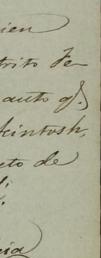 ien
trito Fe-
auto qe.
ckintosh,
eto de
cia